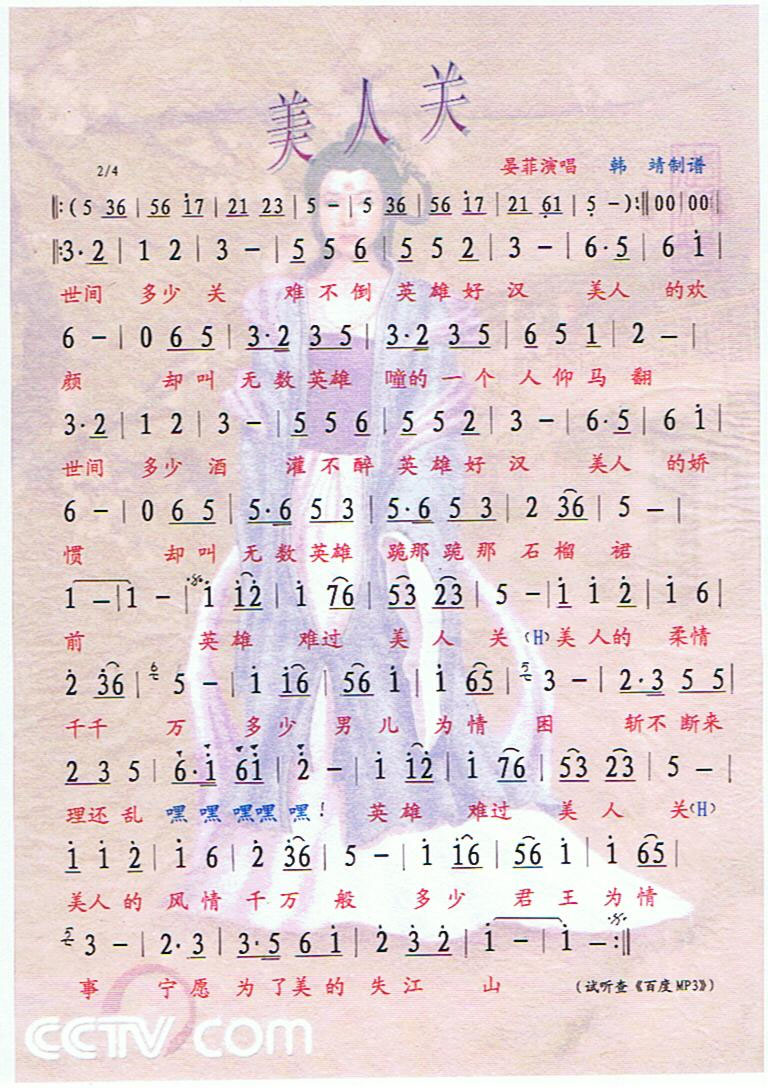 美人关
2/4
晏菲演唱 韩 靖制谱
‖:(5 36 | 56 i̇7 | 21 23 | 5 - | 5 36 | 56 17 | 21 61 | 5 -):‖ 00 | 00 |
‖:3·2 | 1 2 | 3 - | 5 5 6 | 5 5 2 | 3 - | 6·5 | 6 i |
世间 多少 关 难不倒 英雄好汉 美人 的欢
6 - | 0 6 5 | 3·2 3 5 | 3·2 3 5 | 6 5 1 | 2 - |
颜 却叫 无数英雄 噇的一个 人仰马翻
3·2 | 1 2 | 3 - | 5 5 6 | 5 5 2 | 3 - | 6·5 | 6 i |
世间 多少 酒 灌不醉 英雄好汉 美人 的娇
6 - | 0 6 5 | 5·6 5 3 | 5·6 5 3 | 2 36 | 5 - |
惯 却叫 无数英雄 跪那跪那 石榴 裙
1 - | 1 - | i i2 | i 76 | 53 23 | 5 - | i i 2 | i 6 |
前 英雄 难过 美人 关(H)美人的 柔情
2 36 | 5 - | i i6 | 56 i | i 65 | 3 - | 2·3 5 5 |
千千 万 多少 男儿 为情 困 斩不断来
2 3 5 | 6·i 6i | 2 - | i i2 | i 76 | 53 23 | 5 - |
理还乱 嘿嘿嘿嘿嘿! 英雄 难过 美人 关(H)
i i 2 | i 6 | 2 36 | 5 - | i i6 | 56 i | i 65 |
美人的 风情 千万 般 多少 君王 为情
3 - | 2·3 | 3·5 6 i | 2 3 2 | i - | i - :‖
事 宁愿 为了美的 失江 山 (试听查《百度MP3》)
CCTV com